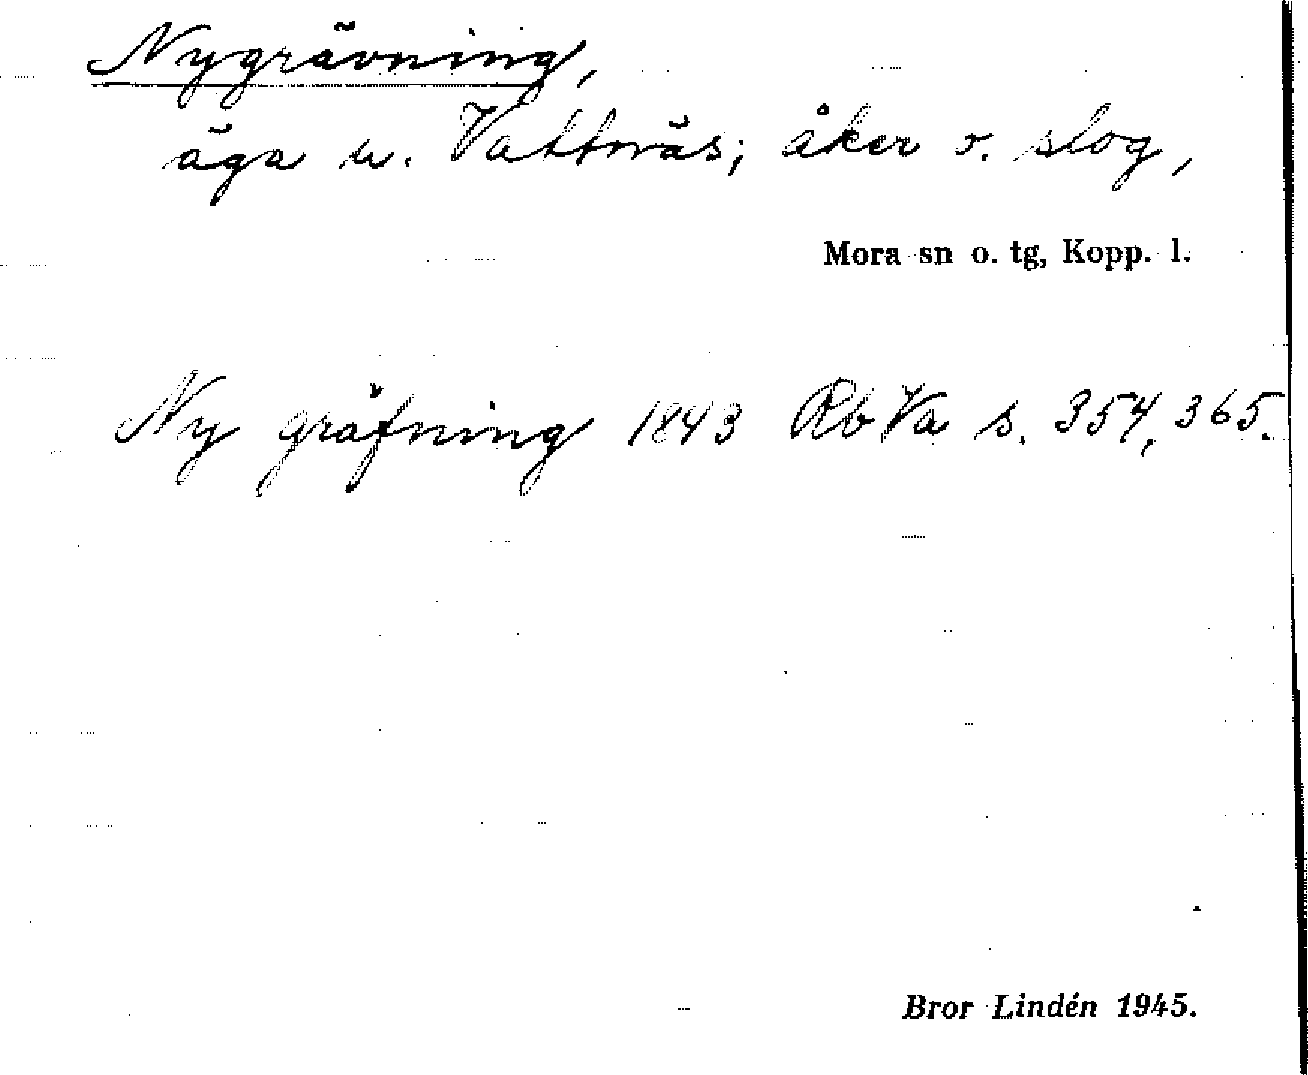 Nygrävning,
äga u. Vattnäs; åker o. slog,
Mora sn o. tg, Kopp. l.
Ny gräfning 1843 Rb Va s. 354, 365.
Bror Lindén 1945.